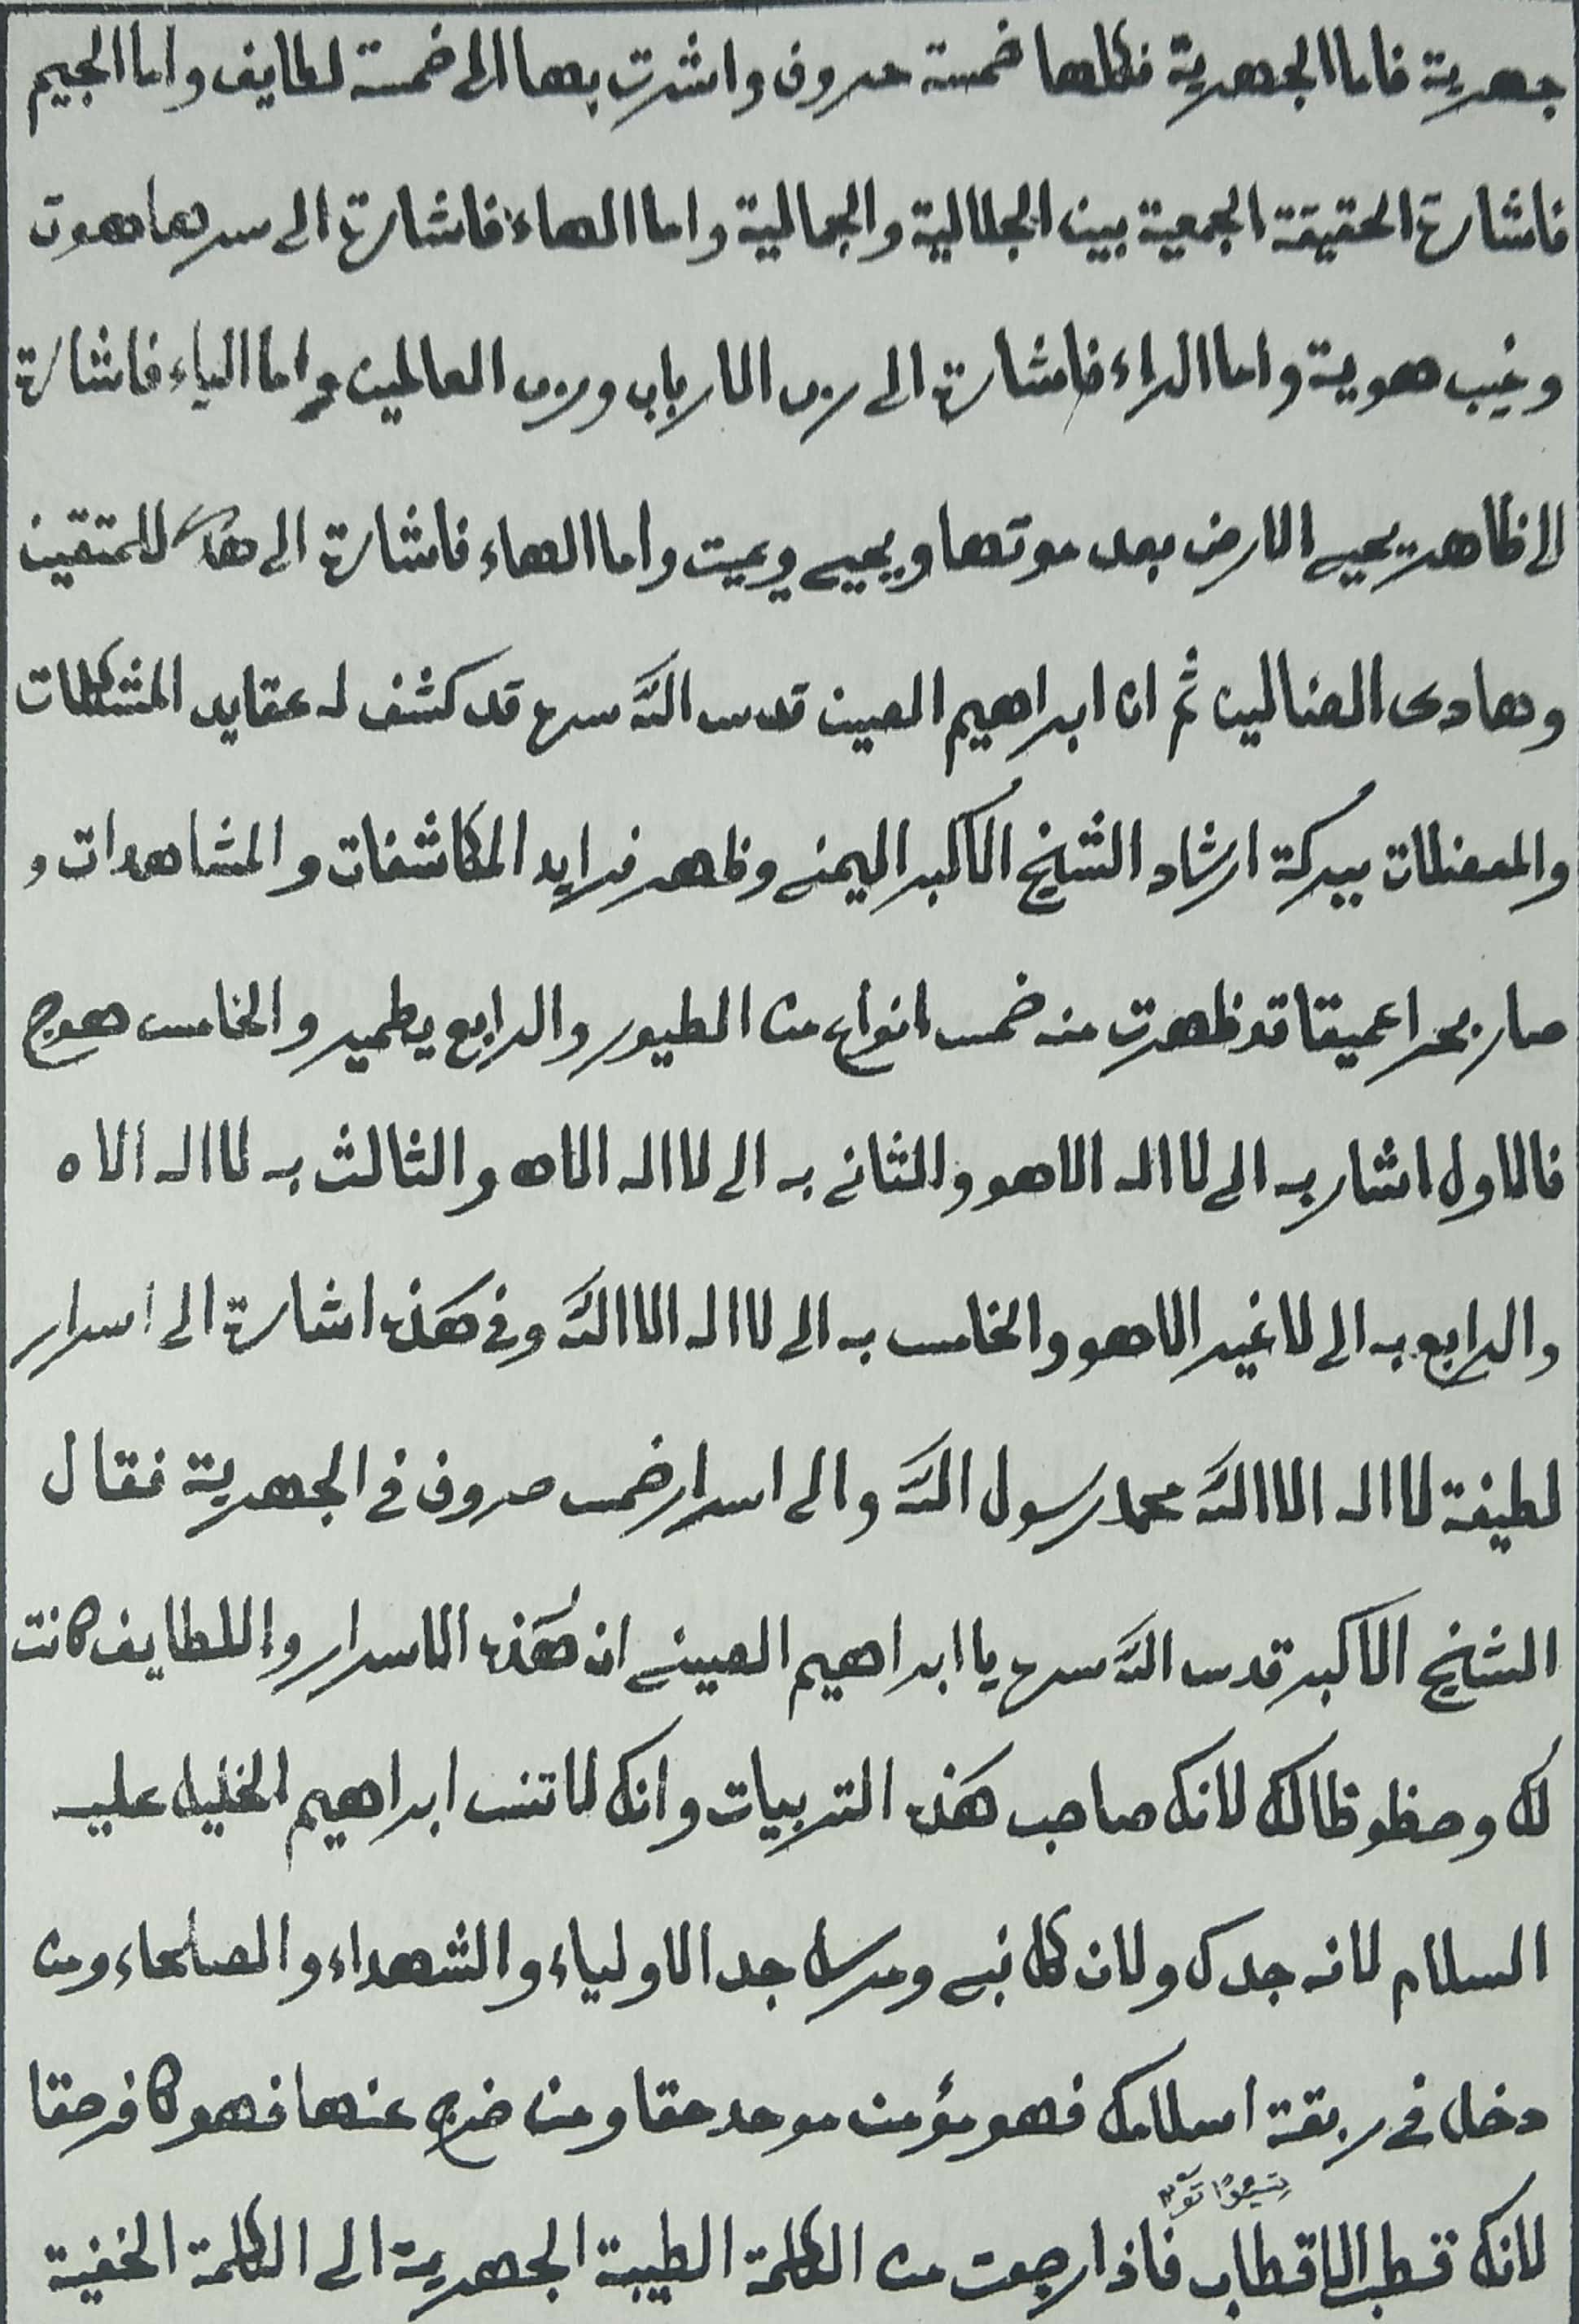 جهرية فاما الجهرية فكلها خمسة حروف واشرت بها الى خمسة لطايف واما الجيم
فاشارة الحقيقة الجمعية بين الجلالية والجمالية واما الهاء فاشارة الى سر هاهوت
وغيب هوية واما الراء فاشارة الى رب الارباب ورب العالمين واما الياء فاشارة
الى ظاهر يحيى الارض بعد موتها ويحيى ويميت واما الهاء فاشارة الى للمتقين
وهادى الضالين ثم ان ابراهيم الصين قدس الله سره قد كشف له عقايد المشكلات
والمعضلات ببركة ارشاد الشيخ الاكبر اليمنى وظهر فرايد المكاشفات والمشاهدات و
صار بحرا عميقا قد ظهرت منه خمس انواع من الطيور والرابع يطمير والخامس هوج
فالاول اشار به الى لا اله الا هو والثانى به الى لا اله الا هه والثالث به لا اله الا ه
والرابع به الى لا غير الا هو والخامس به الى لا اله الا الله وفى هذه اشارة الى اسرار
لطيفة لا اله الا الله محمد رسول الله والى اسرار خمس حروف فى الجهرية فقال
الشيخ الاكبر قدس الله سره يا ابراهيم الصينى ان هذه الاسرار واللطايف كانت
لك وحظوظا لك لانك صاحب هذه التربيات وانك لا تنس ابراهيم الخليل عليه
السلام لانه جدك ولان كل نبى ومرسل جد الاولياء والشهداء والصلحاء ومن
دخل فى ربقة اسلامك فهو مؤمن موحد حقا ومن خرج عنها فهو كافر حقا
لانك قطب الاقطاب فاذا رجعت من الكلمة الطيبة الجهرية الى الكلمة الخفية